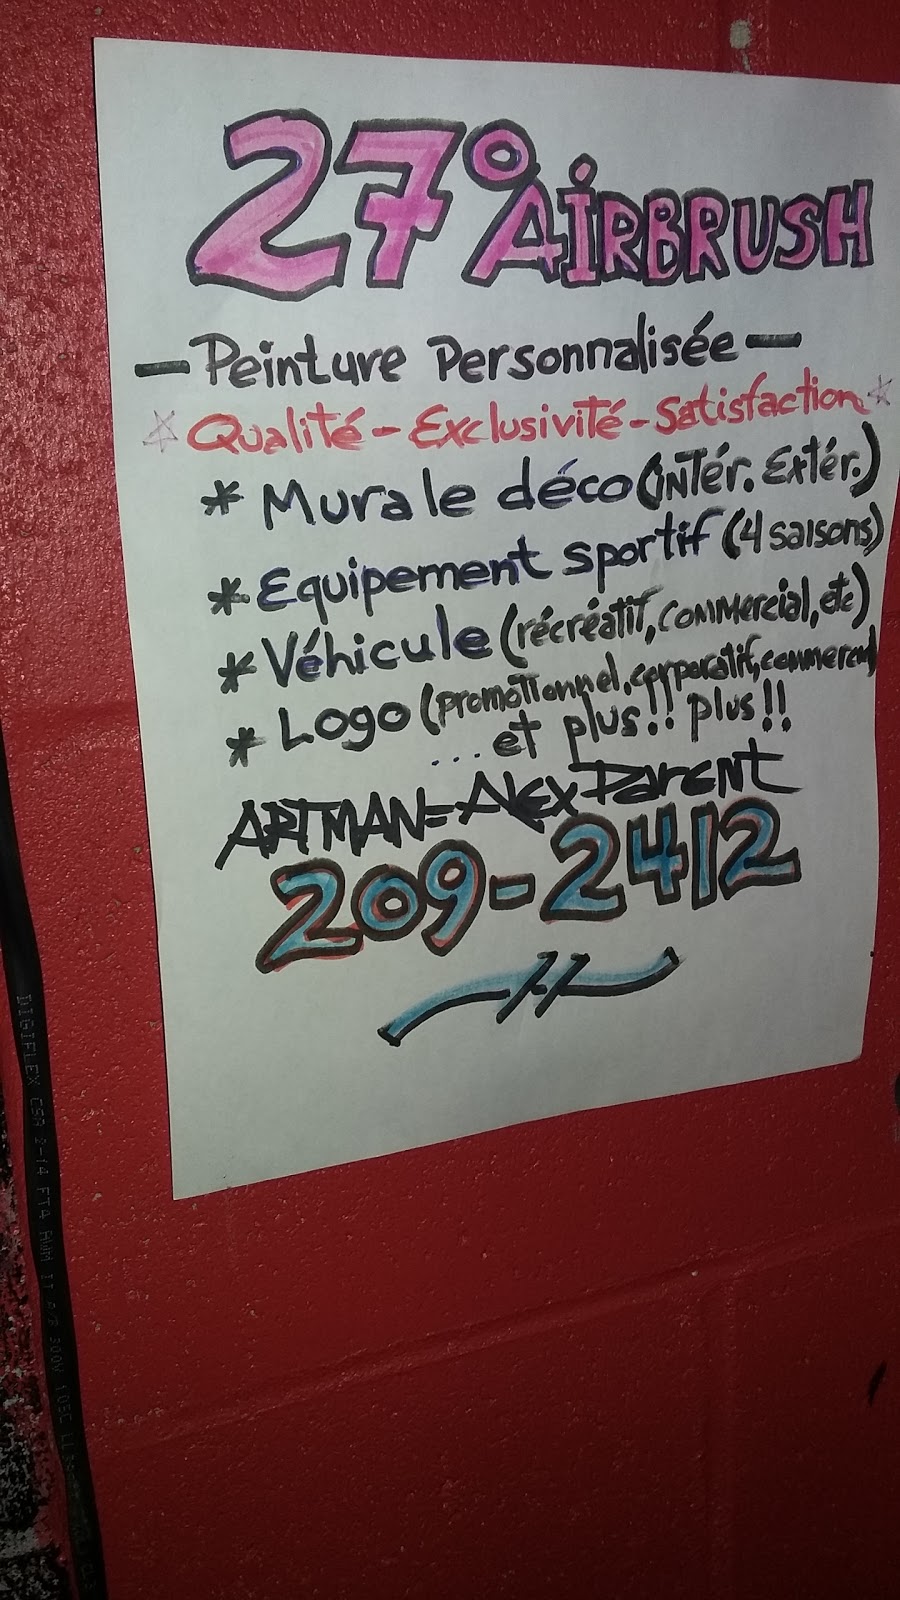 27° AIRBRUSH
— Peinture Personnalisée —
☆ Qualité - Exclusivité - Satisfaction ☆
* Murale déco (intér. Extér.)
* Equipement sportif (4 saisons)
* Véhicule (récréatif, commercial, etc)
* Logo (promotionnel, corporatif, commercial)
...et plus!! plus!!
ARTMAN = Alex Parent
209-2412
DIGIFLEX CSA
FT4 AWM 300V